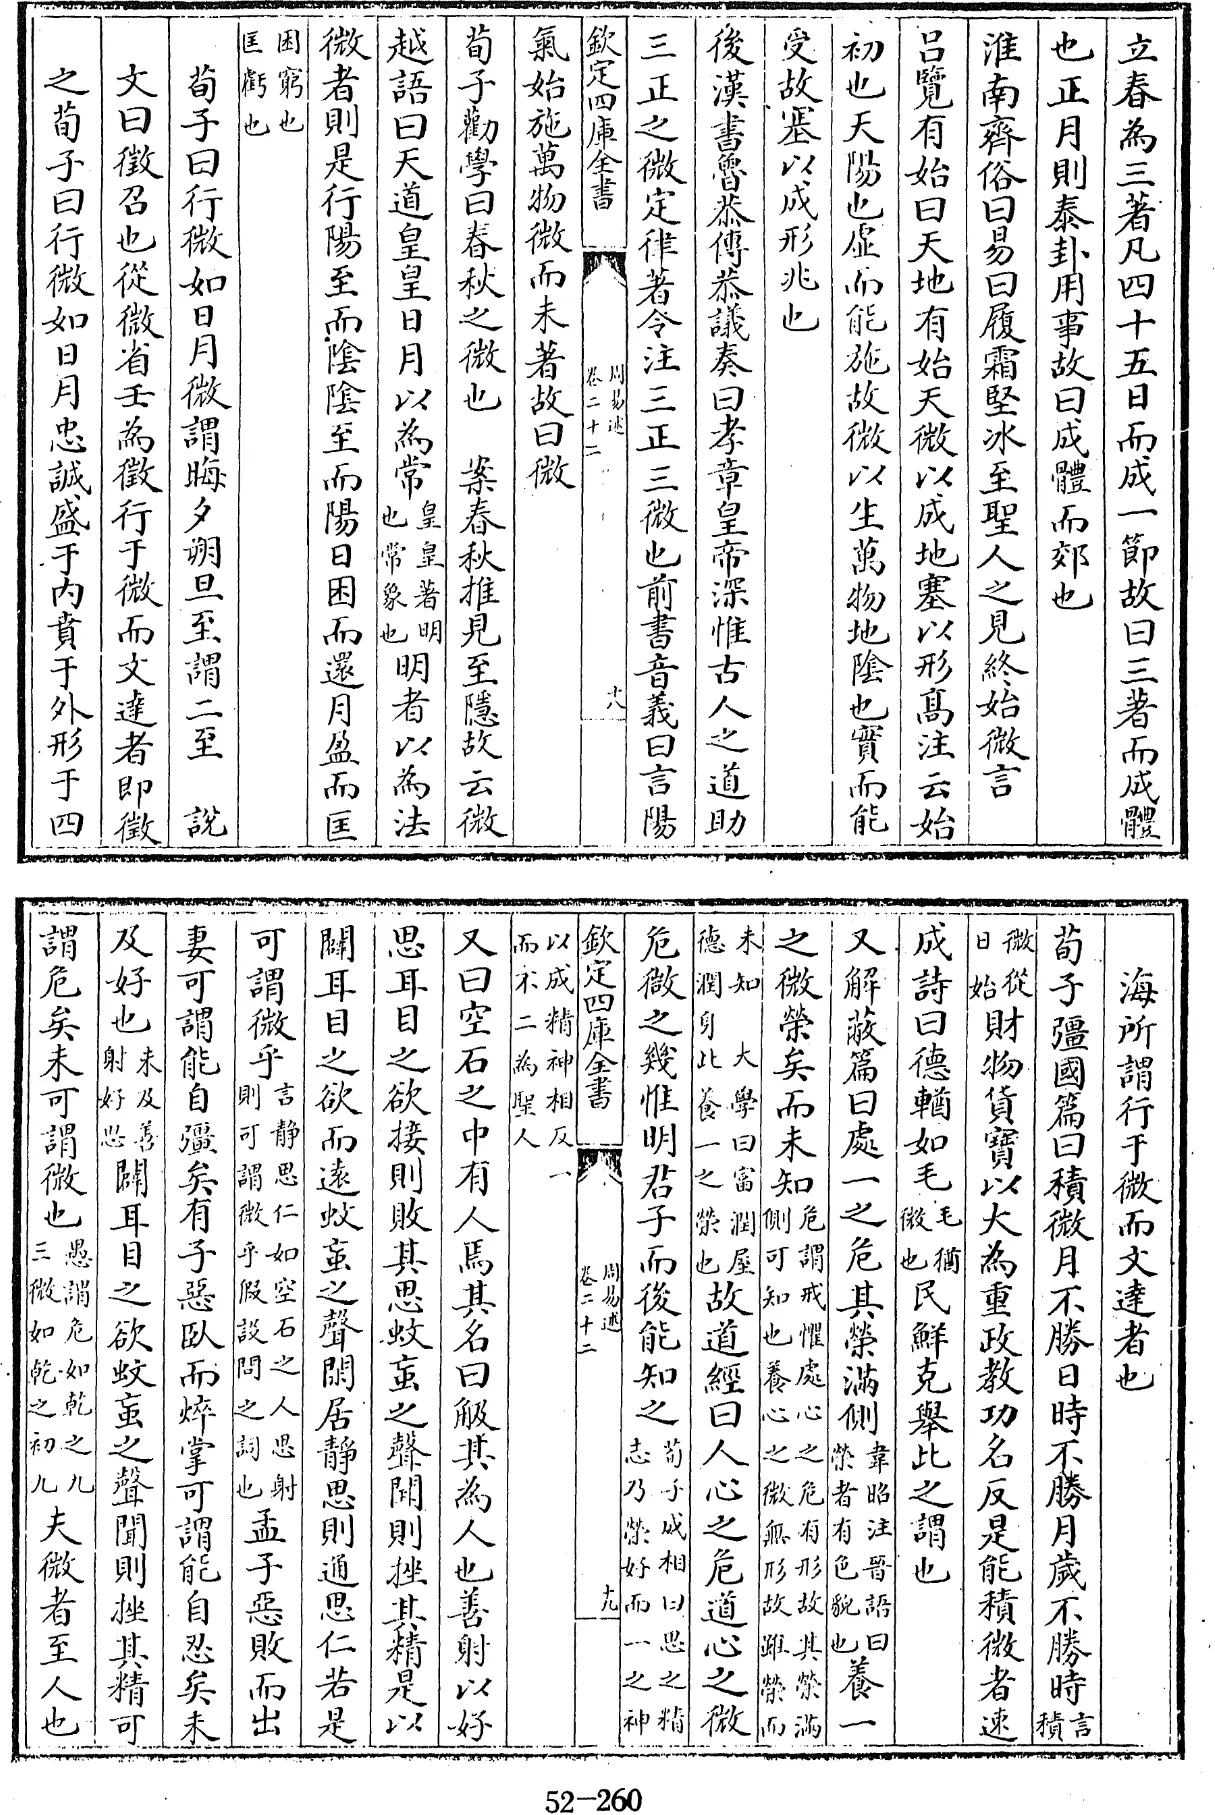 立春為三著凡四十五日而成一節故曰三著而成體
也正月則泰卦用事故曰成體而郊也
淮南齊俗曰易曰履霜堅冰至聖人之見終始微言
呂覽有始曰天地有始天微以成地塞以形高注云始
初也天陽也虛而能施故微以生萬物地陰也實而能
受故塞以成形兆也
後漢書魯恭傳恭議奏曰孝章皇帝深惟古人之道助
三正之微定律著令注三正三微也前書音義曰言陽
欽定四庫全書
周易述
卷二十二
十八
氣始施萬物微而未著故曰微
荀子勸學曰春秋之微也 案春秋推見至隱故云微
越語曰天道皇皇日月以為常皇皇著明也常象也明者以為法
微者則是行陽至而陰陰至而陽日困而還月盈而匡
困窮也匡虧也
荀子曰行微如日月微謂晦夕朔旦至謂二至 說
文曰徵召也從微省壬為徵行于微而文達者即徵
之荀子曰行微如日月忠誠盛于内賁于外形于四
海所謂行于微而文達者也
荀子彊國篇曰積微月不勝日時不勝月歲不勝時言積
微從日始財物貨寶以大為重政教功名反是能積微者速
成詩曰德輶如毛毛猶微也民鮮克舉此之謂也
又解蔽篇曰處一之危其榮滿側韋昭注晉語曰榮者有色貌也養一
之微榮矣而未知危謂戒懼處心之危有形故其榮滿側可知也養心之微無形故雖榮而
未知 大學曰富潤屋德潤身此養一之榮也故道經曰人心之危道心之微
危微之幾惟明君子而後能知之荀子成相曰思之精志乃榮好而一之神
欽定四庫全書
周易述
卷二十二
十九
以成精神相反一而不二為聖人
又曰空石之中有人焉其名曰觙其為人也善射以好
思耳目之欲接則敗其思蚊䖟之聲聞則挫其精是以
闢耳目之欲而遠蚊䖟之聲閑居靜思則通思仁若是
可謂微乎言靜思仁如空石之人思射則可謂微乎假設問之詞也孟子惡敗而出
妻可謂能自彊矣有子惡臥而焠掌可謂能自忍矣未
及好也未及善射好思闢耳目之欲蚊䖟之聲聞則挫其精可
謂危矣未可謂微也愚謂危如乾之九三微如乾之初九夫微者至人也
52-260